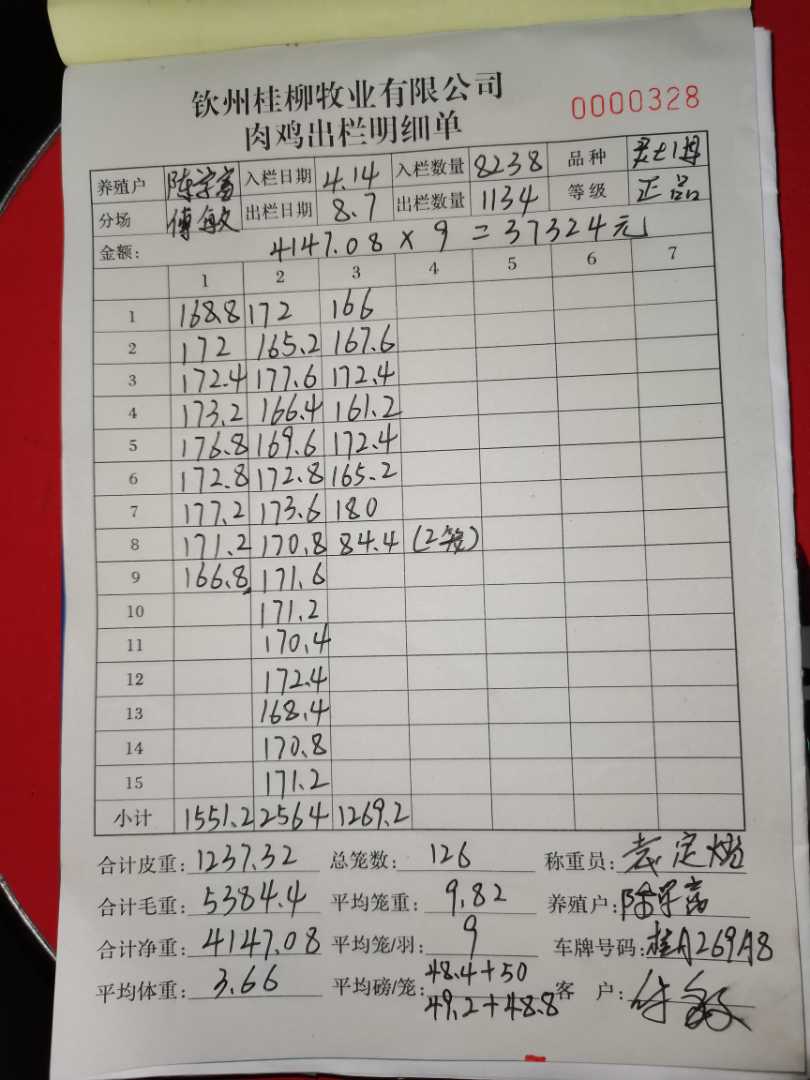 钦州桂柳牧业有限公司
0000328
肉鸡出栏明细单
养殖户 陈宗富 入栏日期 4.14 入栏数量 8238 品种
分场 傅敏 出栏日期 8.7 出栏数量 1134 等级 正品
金额: 4147.08 × 9 = 37324元
1 2 3 4 5 6 7
1 168.8 172 166
2 172 165.2 167.6
3 172.4 177.6 172.4
4 173.2 166.4 161.2
5 176.8 169.6 172.4
6 172.8 172.8 165.2
7 177.2 173.6 180
8 171.2 170.8 84.4 (2笼)
9 166.8 171.6
10 171.2
11 170.4
12 172.4
13 168.4
14 170.8
15 171.2
小计 1551.2 2564 1269.2
合计皮重: 1237.32 总笼数: 126 称重员:
合计毛重: 5384.4 平均笼重: 9.82 养殖户:
合计净重: 4147.08 平均笼/羽: 9 车牌号码: 桂A269A8
平均体重: 3.66 平均磅/笼: 48.4+50 客 户:
49.2+48.8